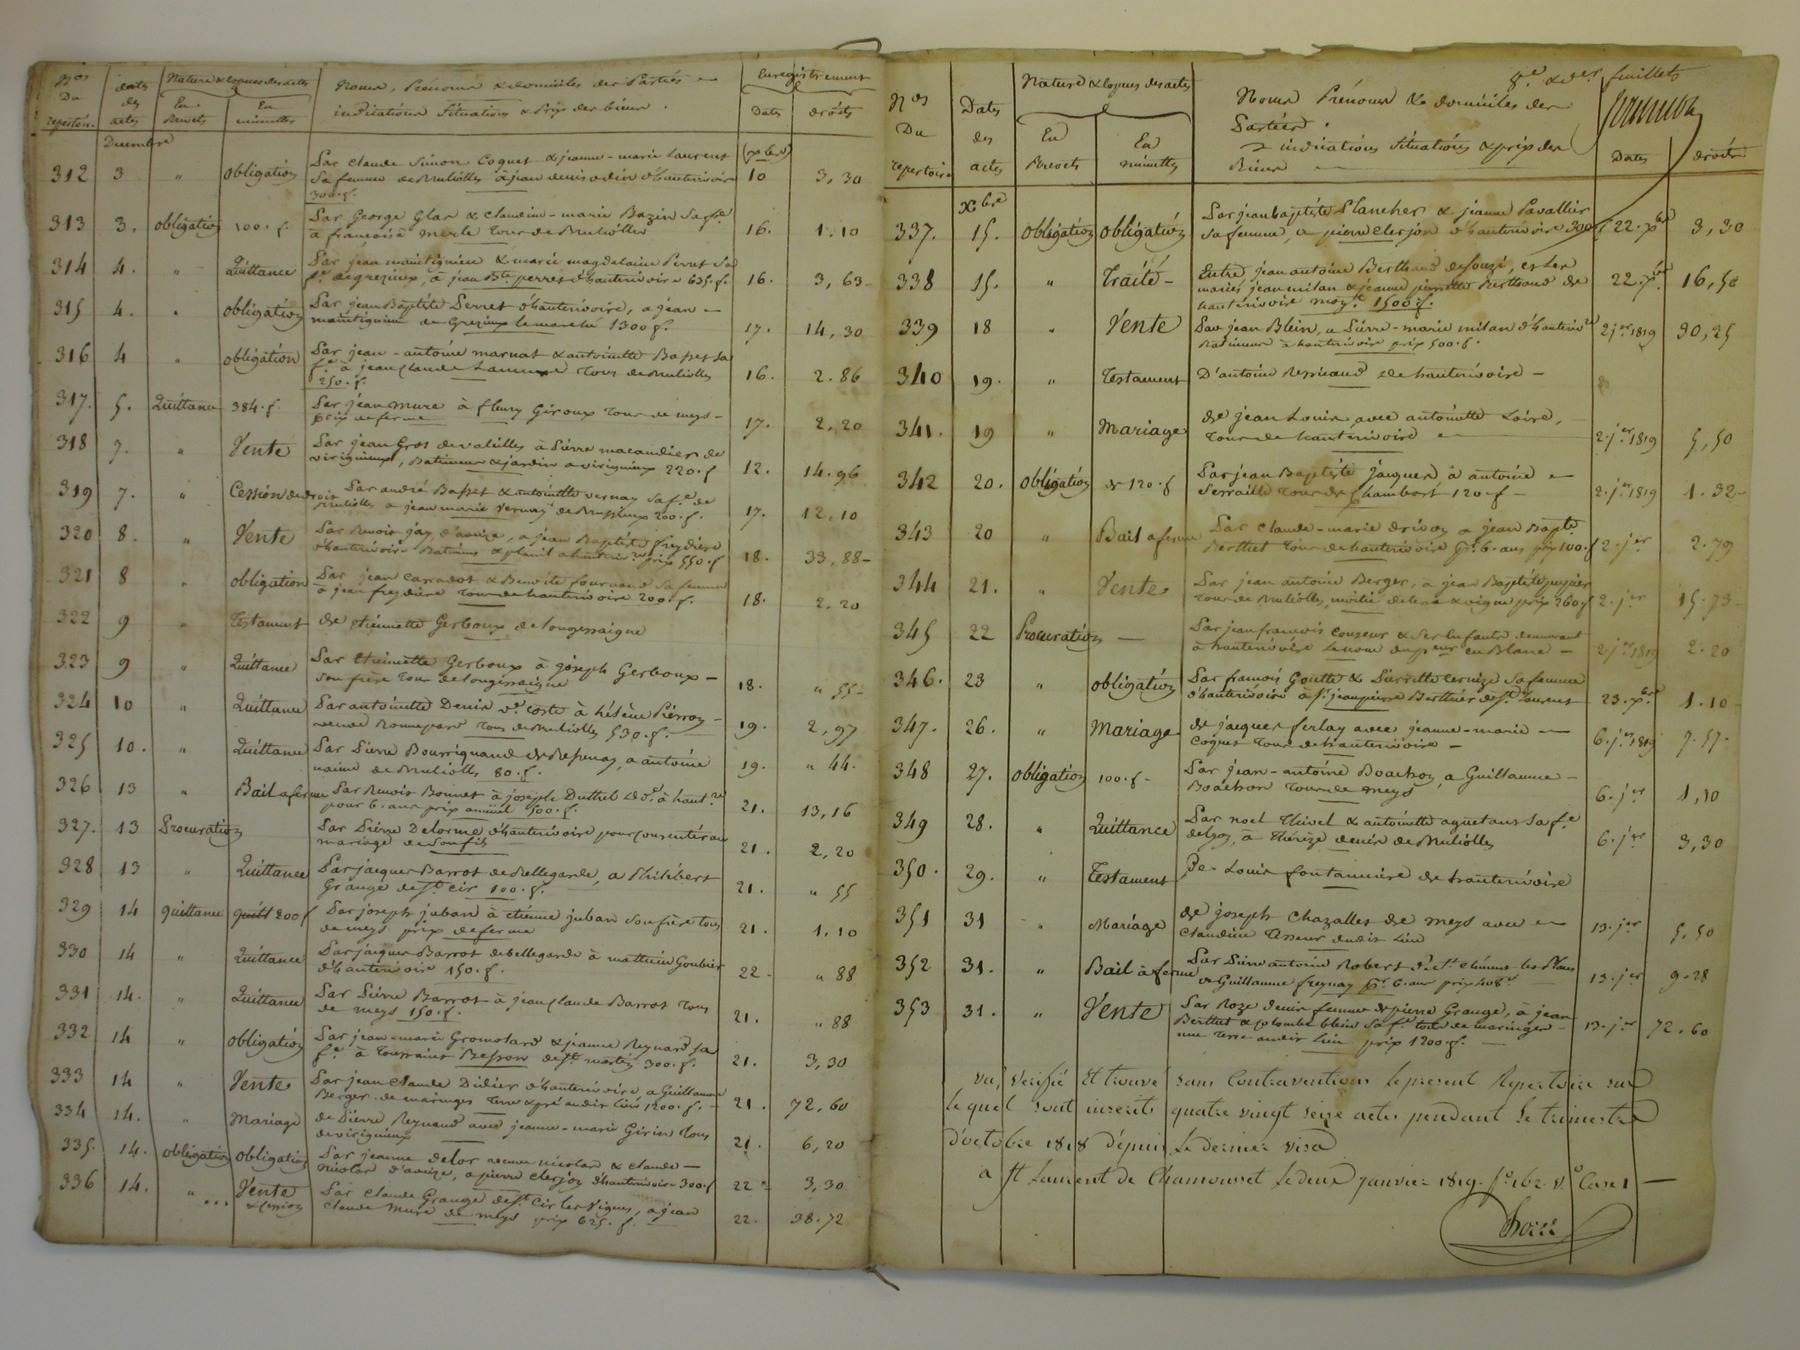 Nos Du repertoire
dates des actes
Nature & especes des actes
En Brevets
En minuttes
Noms, Prénoms & domiciles des Parties
indications Situations & Prix des biens.
Enregistrement
Dates
droits
Decembre
(xbre)
312 3 " obligation Par Claude Simon Coquet & jeanne-marie Laurent 10 3,30
sa femme de Brulliolles à jean denis odin d'hauterivoire
300.f.
313 3. obligation 100.f Par George Glas & Claudine-marie Bazin sa fe 16. 1.10
à françoise merle tous de Brulliolles
314 4. " Quittance Par jean maintignieu & marie magdelaine Perret sa 16. 3,63
fe de grezieux, à jean Bte perret d'hauterivoire 635.f.
315 4. " obligation Par jean Baptiste Perret d'hauterivoire, a jean 17. 14,30
maintignieu de Grezieux le marché 1300 f.
316 4 " obligation Par jean-antoine marnat & antoinette Basset sa 16. 2.86
fe à jean Claude Lamure tous de Brulliolles
250.f.
317. 5. Quittance 384.f. Par jean mure à fleury Giroux tous de meys 17. 2,20
prix de ferme
318 7. " Vente Par jean Gros de valeilles à Pierre macaudier de 12. 14.96
virigneux, Batiment & jardin a virigneux 220.f
319 7. " Cession de droits Par andré Basset & antoinette vernay sa fe de 17. 12,10
Brulliolles a jean marie Vernay de Brussieux 200.f.
320 8. " Vente Par Benoit jay d'aveize, a jean Baptiste freydiere 18. 33,88
d'hauterivoire Batiment & prix 550.f
321 8 " obligation Par jean Carradot & Benoite fournand sa femme 18. 2.20
à jean freydiere tous de hauterivoire 200.f.
322 9 " Testament de etiennette Gerboux de Longessaigne
323 9 " Quittance Par etiennette Gerboux à joseph Gerboux 18. " 55
son frere tous de longessaigne
324 10 " Quittance Par antoinette Denis ve Coste à héléne Pierron 19. 2,97
veuve tous de Brulliolles 530.f.
325 10. " Quittance Par Pierre Bourrignaud a antoine 19. " 44.
naime de Brulliolles 80.f.
326 13 " Bail a ferme Par Benoit Bonnet à joseph Duttel à hautre 21. 13,16
pour 6. ans prix annuel 500.f.
327. 13 Procuration Par Pierre Delorme d'hauterivoire pour consentir au 21. 2,20
mariage de son fils
328 13 " Quittance Par jacques Barrot de Bellegarde, a Philibert 21. " 55
Grange de St Cir 100.f.
329 14 quittance quitt 200f Par joseph juban à etienne juban son frere tous 21. 1.10
de meys prix de ferme
330 14 " Quittance Par jacques Barrot de bellegarde à mathieu Goubier 22 " 88
d'hauterivoire 150.f.
331 14. " Quittance Par Pierre Barrot à jean Claude Barrot tous 21. " 88
de meys 150.f.
332 14 " obligation Par jean-marie Gromolard & jeanne Reynard sa 21. 3,30
fe à Toussaint Besson de St martin 300.f.
333 14 " Vente Par jean Claude Didier d'hauterivoire, a Guillaume 21. 72,60
Berger de maringes terre & pré audit lieu 1200.f.
334 14. " Mariage de Pierre Reynaud avec jeanne-marie Girin tous 21. 6,20
de virigneux
335. 14. obligation obligation Par jeanne delor veuve nicolas & Claude 22 3,30
nicolas d'aveize, a pierre Clerjon d'hauterivoire 300.f
336 14. " ... Vente & Cession Par Claude Grange de St Cir les Vignes, a jean 22. 38.72
Claude mure de meys prix 625.f.
8e & der feuillets
Nos Du repertoire
Dates des actes
Nature & especes des actes
En Brevets
En minuttes
Noms Prénoms & domiciles des
Parties.
indications situations & prix des
Biens
Dates
droits
Xbre
337. 15. obligation obligation Par jean baptiste Plancher & jeanne Pavallier 22. xbre 3,30
sa femme, a pierre Clerjon d'hauterivoire 300
338 15. " Traité Entre jean antoine Berthoud de Souzi, et les 22. xbre 16,50
mariés jean milan & jeanne pierrette Berthoud de
hauterivoire moyt 1500.f.
339 18 " Vente Par jean Blein, a Pierre-marie milan d'hauterivre 2 jer 1819 30,25
Batiment à hauterivoire prix 500.f.
340 19. " Testament D'antoine de hauterivoire
341. 19 " Mariage de jean Louis avec antoinette Loire, 2. jer 1819 5,50
tous de hauterivoire
342 20. obligation de 120.f Par jean Baptiste jacques à antoine 2. jer 1819 1.32
Serraille tous de Chambost 120.f
343 20 " Bail a ferme Par Claude-marie drivon a jean Bapte 2. jer 2.79
Berthet tous de hauterivoire pr 6. ans prix 100.f
344 21. " Vente Par jean antoine Berger, a jean Baptiste 2. jer 15.73
tous de Brulliolles, moitié de terre & vigne prix 260.f
345 22 Procuration Par jean françois Couzeur & ses Enfants demeurant 2. jer 1819 2.20
à hauterivoire Le nom du pr en Blanc
346. 23 " obligation Par françois Goutte & Pierrette Cernize sa femme 23. xbre 1.10
d'hauterivoire à Sr jean pierre Berthier de St Laurent
347. 26. " Mariage de jacques ferlay avec jeanne-marie 6. jer 1819 7.57.
Coquet tous de hauterivoire
348 27. obligation 100.f Par jean-antoine Boachon, a Guillaume 6. jer 1,10
Boachon tous de meys
349 28. " Quittance Par noel Thivel & antoinette sa fe 6. jer 3,30
à Thereze denis de Brulliolles
350. 29. " Testament De Louis fontanniere de hauterivoire
351 31 " Mariage de joseph Chazalles de meys avec 13. jer 5,50
Claudine Tisseur dudit lieu
352 31. " Bail à ferme Par Pierre antoine Robert 13. jer 9.28
a Guillaume freynay pr 6 ans prix
353 31. " Vente Par Roze denis femme de pierre Grange, à jean 13. jer 72.60
Berthet & Colombe blein sa fe tous de maringes
une Terre audit Lieu prix 1200.f.
vu, Verifié Et trouvé sans Contraventions le present Repertoire sur
le quel sont inscrits quatre vingt seize actes pendant Le trimestre
d'octobre 1818 dépuis Le dernier visa
a St Laurent de Chamousset Le deux janvier 1819. fo 162 Vo Case 1